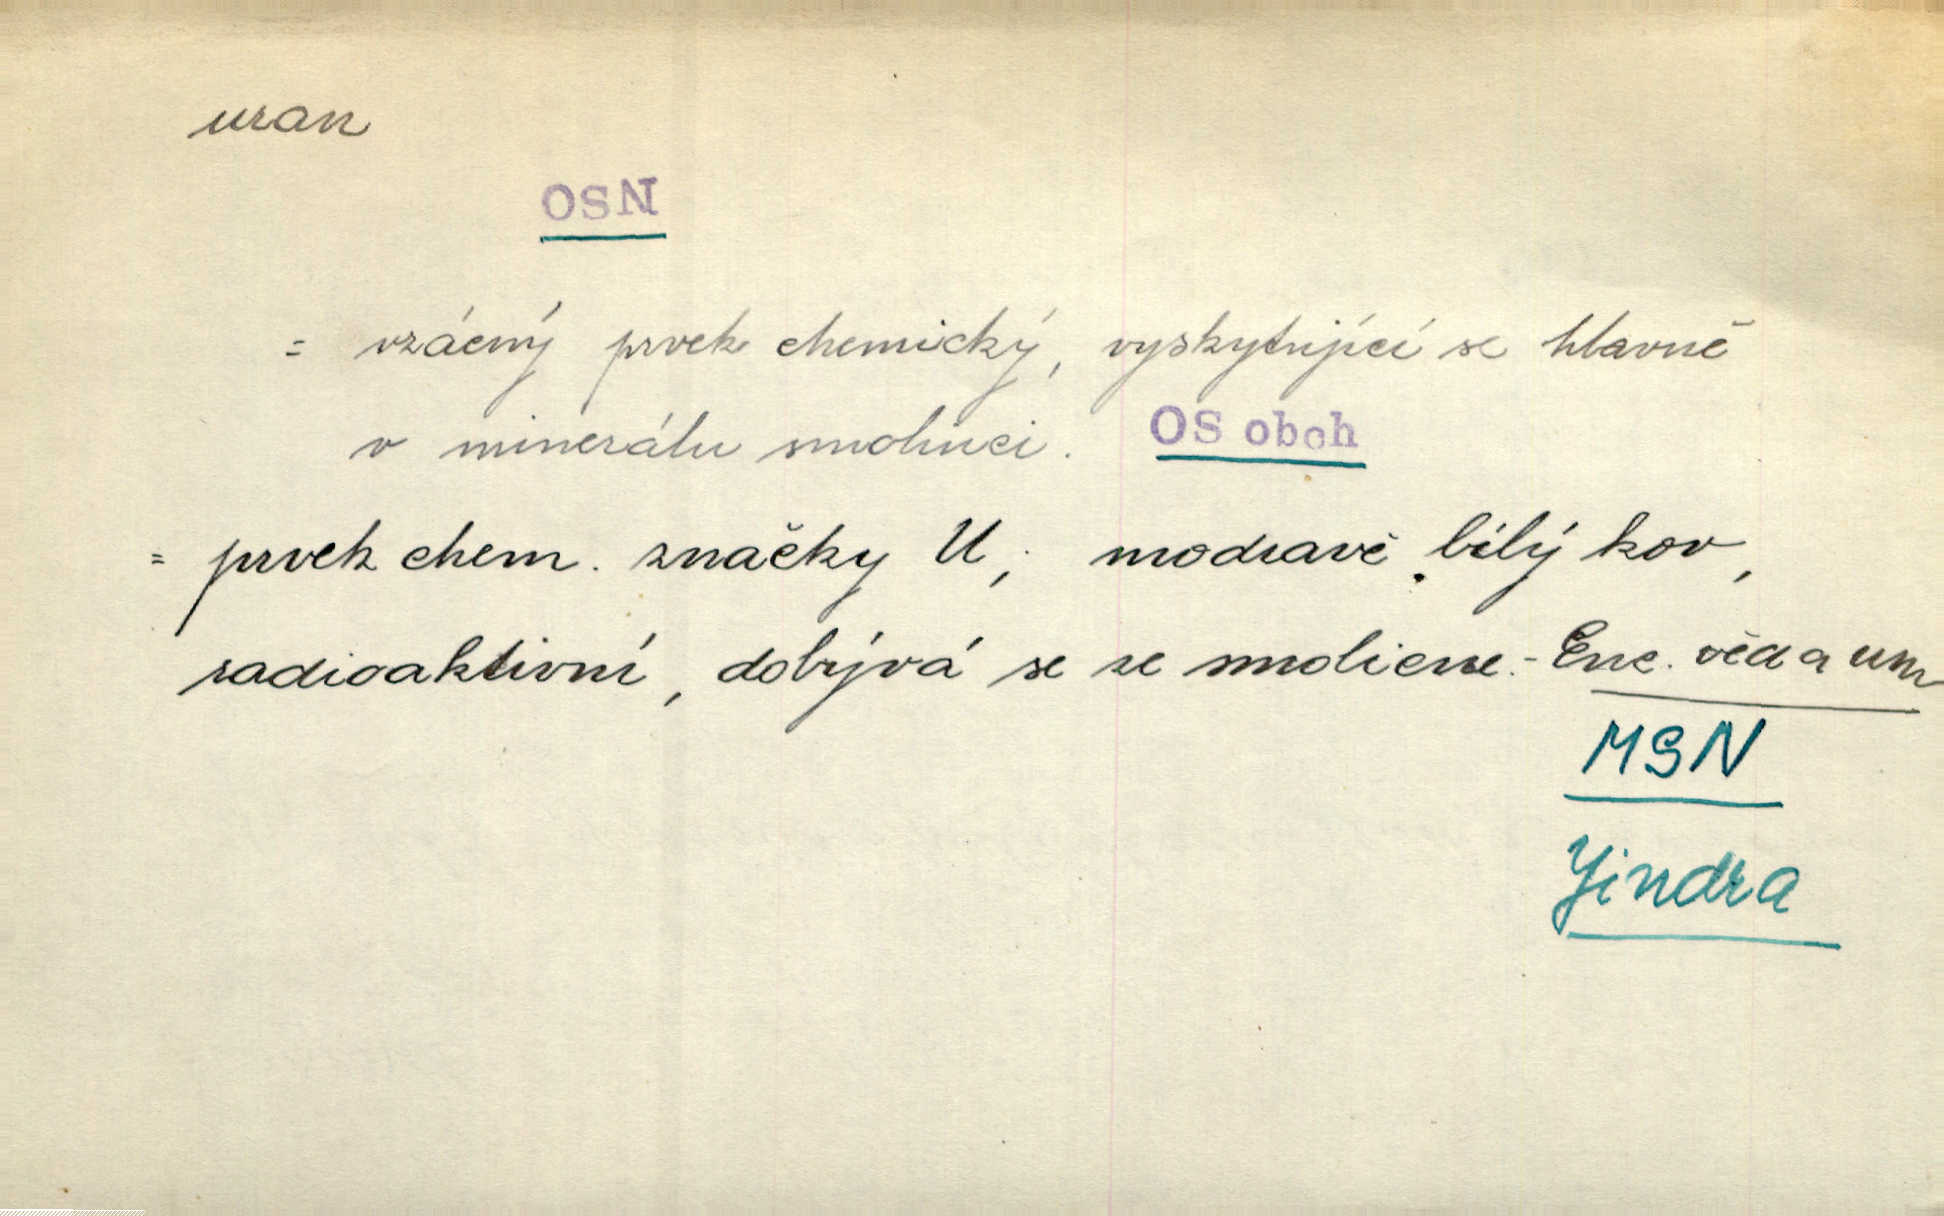 uran
OSN
= vzácný prvek chemický, vyskytující se hlavně
v minerálu smolinci. OS obch
= prvek chem. značky U; modravě bílý kov,
radioaktivní, dobývá se ze smolience. - Enc. věd a um
MSN
Jindra